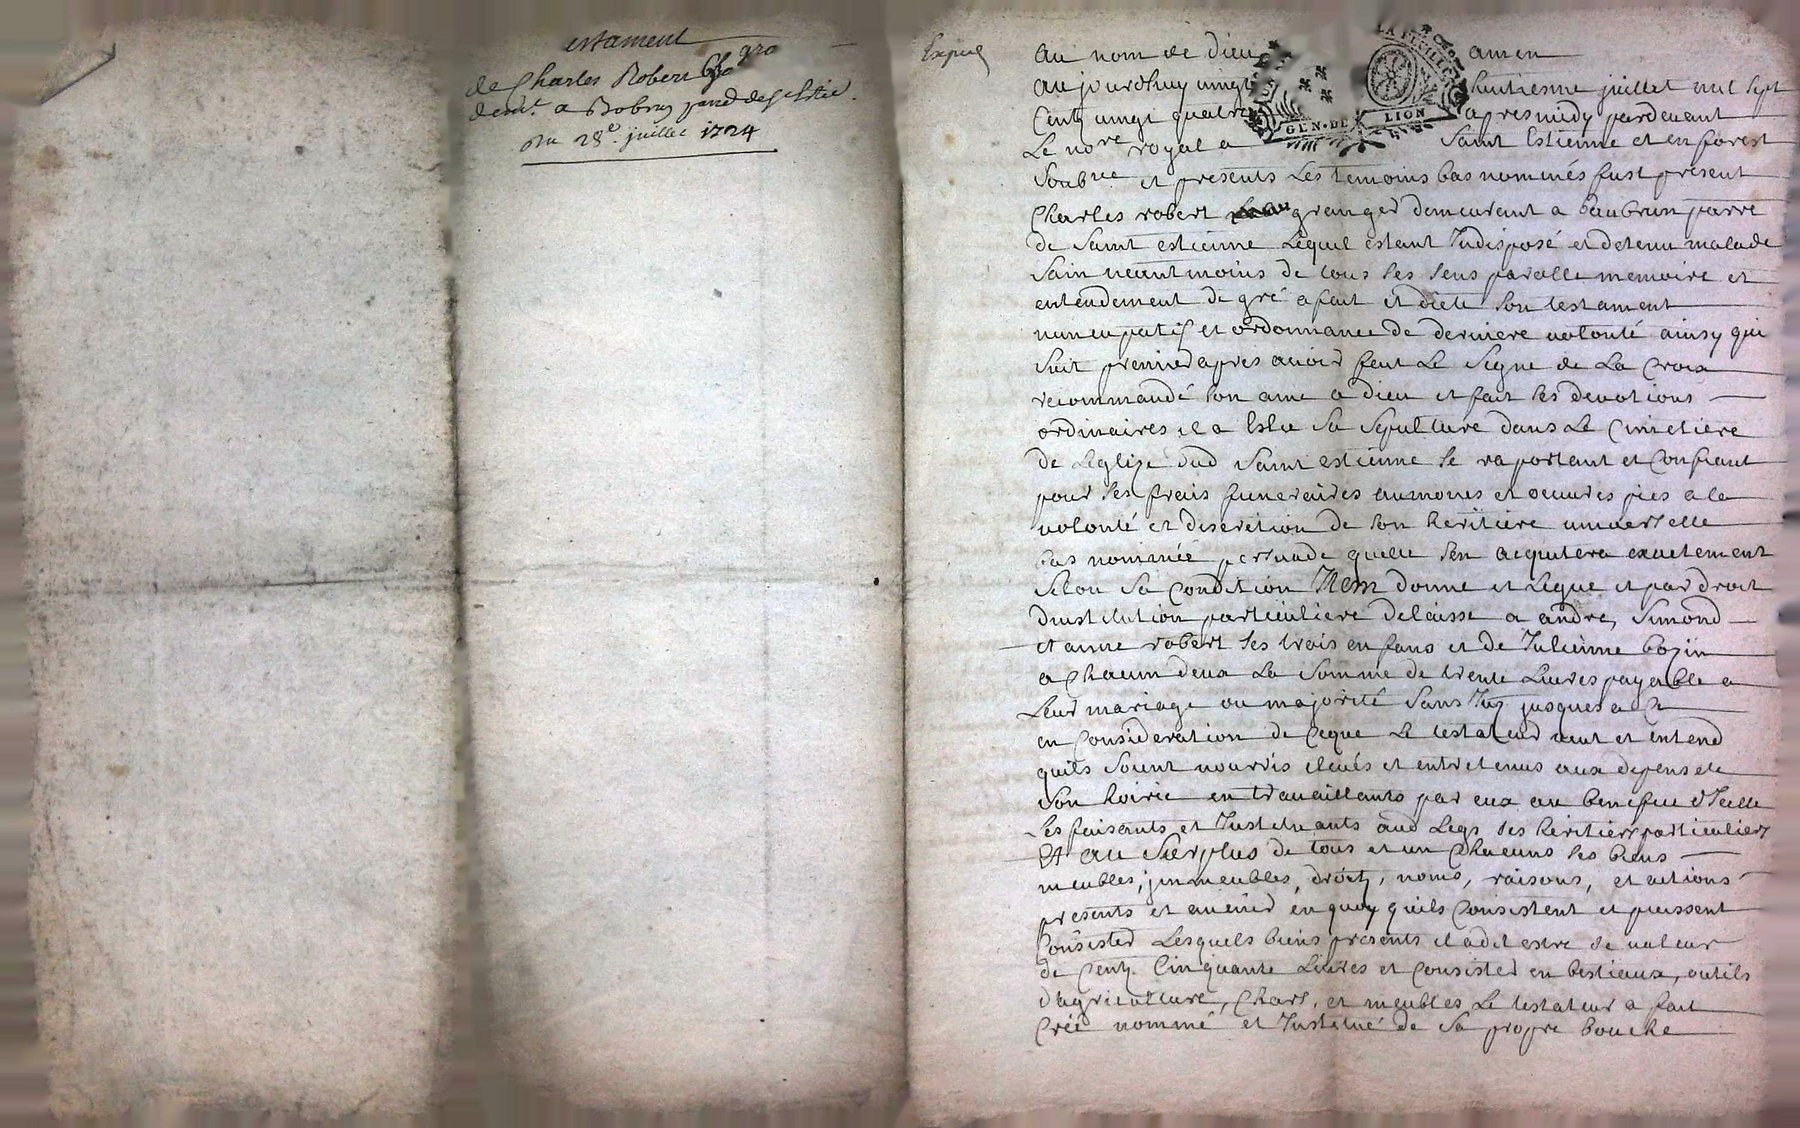 estament
de Charles Robert
demt. a Bobrun parr de St Estie.
Du 28e. juillet 1724
Expié
Au nom de Dieu amen
Aujourdhuy vingt huitiesme juillet mil sept
Centz vingt quatre apres midy pardevant
Le nore royal a Saint Estienne et en forest
Soubne et presents Les temoins bas nommés fust present
Charles robert granger demeurant a baubrun parre
de Saint estienne Lequel estant Indisposé et detenu malade
Sain neantmoins de tous ses sens parolle memoire et
entendement de gré a fait et dicté son testament
nuncupatif et ordonnance de derniere volonté ainsy qui
Suit premier apres avoir fait Le Signe de La Croix
recommandé son ame a dieu et fait ses devotions
ordinaires il a Eslu Sa Sepulture dans Le Cimetiere
de Leglize dud Saint estienne Se raportant et Confiant
pour Ses frais funeraires aumones et oeuvres pies a la
volonté et discretion de son heritiere universelle
bas nommée persuadé quelle sen acquitera exactement
Selon Sa Condition Item donne et Legue et par droit
dinstitution particuliere delaisse a andre, Simond
et anne robert ses trois enfans et de Julienne bazin
a Chacun deux La Somme de trente Livres payable a
Leur mariage ou majorité Sans Intz jusques a Ce
en Consideration de Ceque Le testateur veut et entend
quils Soient nourris elevés et entretenus aux depens de
Son hoirie en travaillants par eux au benefice dIcelle
Les faisants et Instituants aud Legs Ses heritiers particuliers
Et au Surplus de tous et un Chacuns ses biens
meubles, jmmeubles, droitz, noms, raisons, et actions
presents et avenir en quoy quils Consistent et puissent
Consister Lesquels biens presents il a dit estre de valeur
de Centz Cinquante Livres et Consister en bestiaux, outils
d'agriculture, Chars, et meubles Le testateur a fait
Créé nommé et Institué de Sa propre bouche
LA FEUILLE
GEN. DE LION